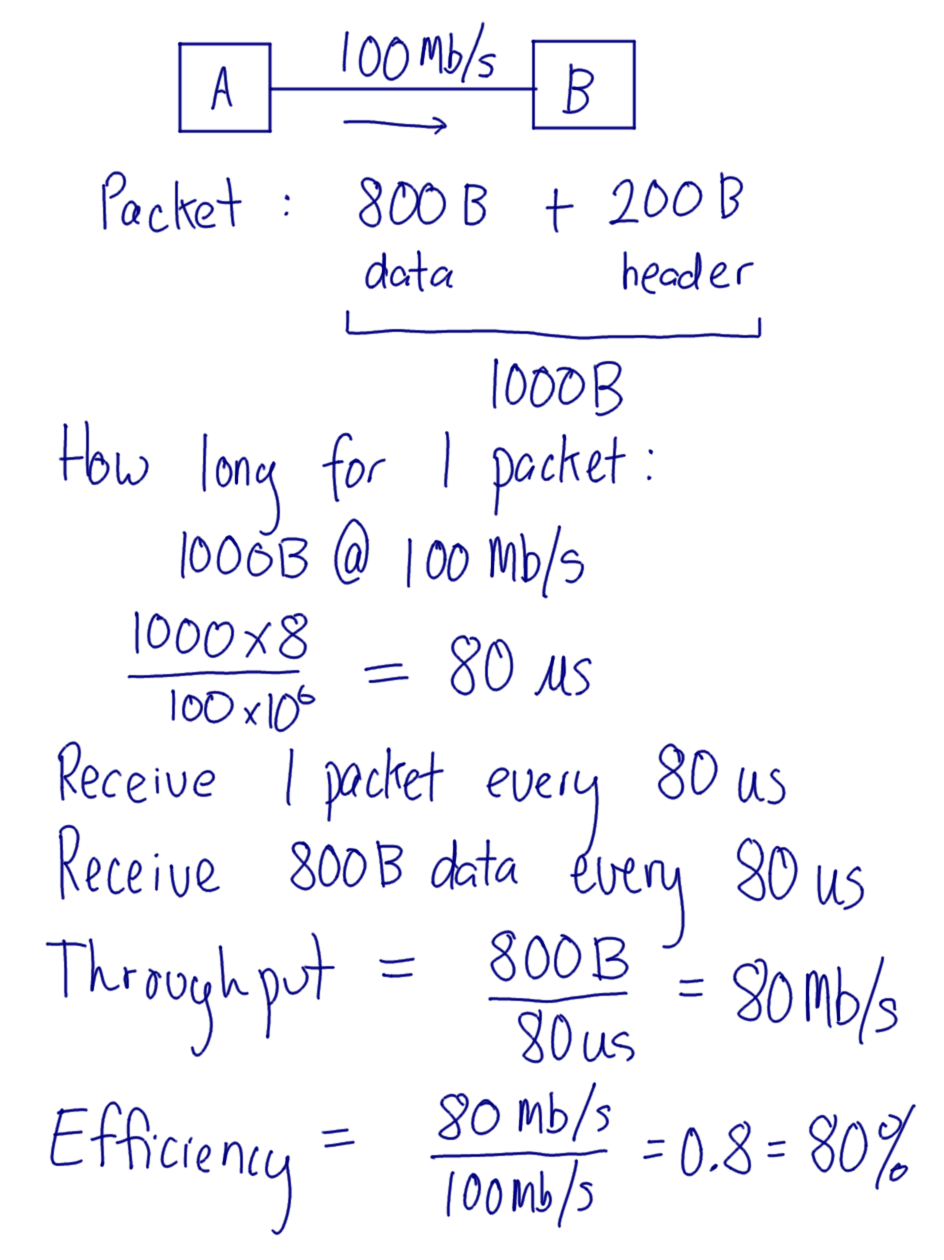 100 Mb/s
A B
Packet : 800 B + 200 B
data header
1000B
How long for 1 packet :
1000B @ 100 Mb/s
1000 x 8
100 x 10⁶
= 80 us
Receive 1 packet every 80 us
Receive 800B data every 80 us
Throughput = 800B / 80 us = 80 Mb/s
Efficiency = 80 mb/s / 100 mb/s = 0.8 = 80%